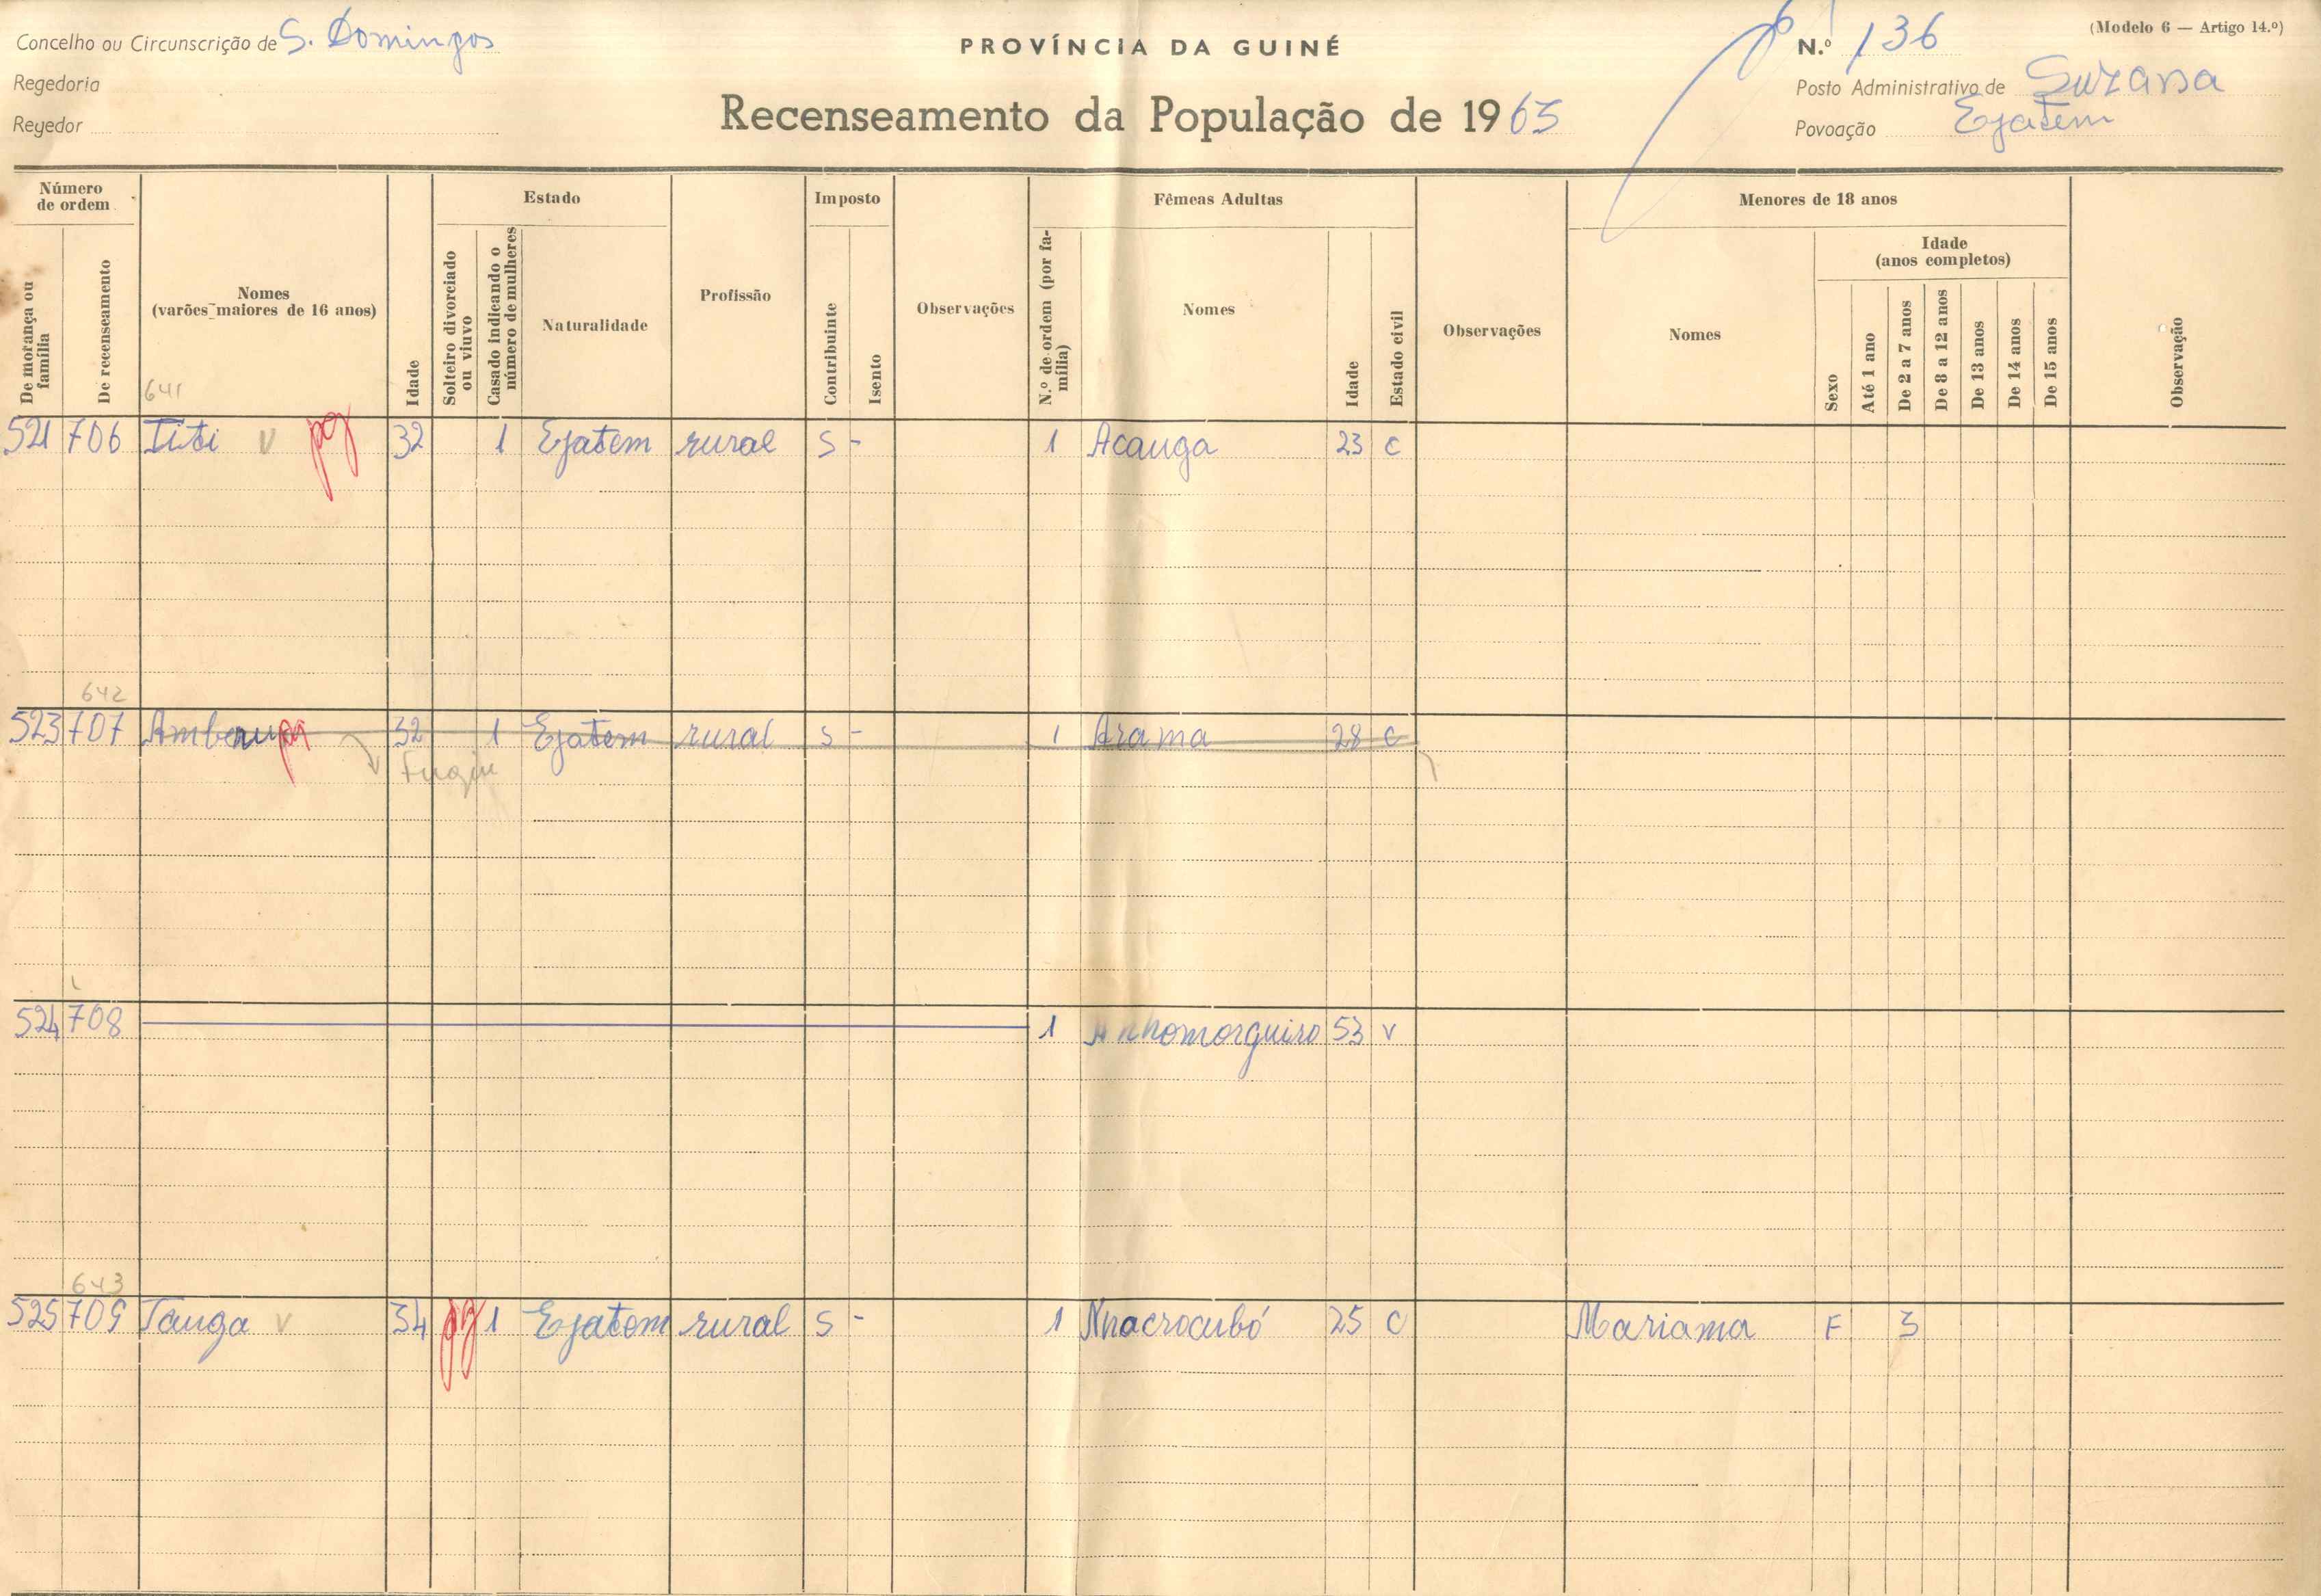 Concelho ou Circunscrição de S. Domingos
PROVÍNCIA DA GUINÉ
N.º 136
(Modelo 6 — Artigo 14.º)
Regedoria
Recenseamento da População de 1963
Posto Administrativo de Suzana
Regedor
Povoação Ejatem
Número de ordem
Estado
Imposto
Fêmeas Adultas
Menores de 18 anos
De morança ou família
De recenseamento
Nomes (varões maiores de 16 anos)
Idade
Solteiro divorciado ou viuvo
Casado indicando o número de mulheres
Naturalidade
Profissão
Contribuinte
Isento
Observações
N.º de ordem (por família)
Nomes
Idade
Estado civil
Observações
Nomes
Idade (anos completos)
Sexo
Até 1 ano
De 2 a 7 anos
De 8 a 12 anos
De 13 anos
De 14 anos
De 15 anos
Observação
641
521 706 Titi v pg 32 1 Ejatem rural S - 1 Acauga 23 c
642
523 707 32 1 Ejatem rural S - 1 Arama 28 c
Fugiu
524 708 1 53 v
643
525 709 Tauga v 34 pg 1 Ejatem rural S - 1 Nhacrocubó 25 C Mariama F 3